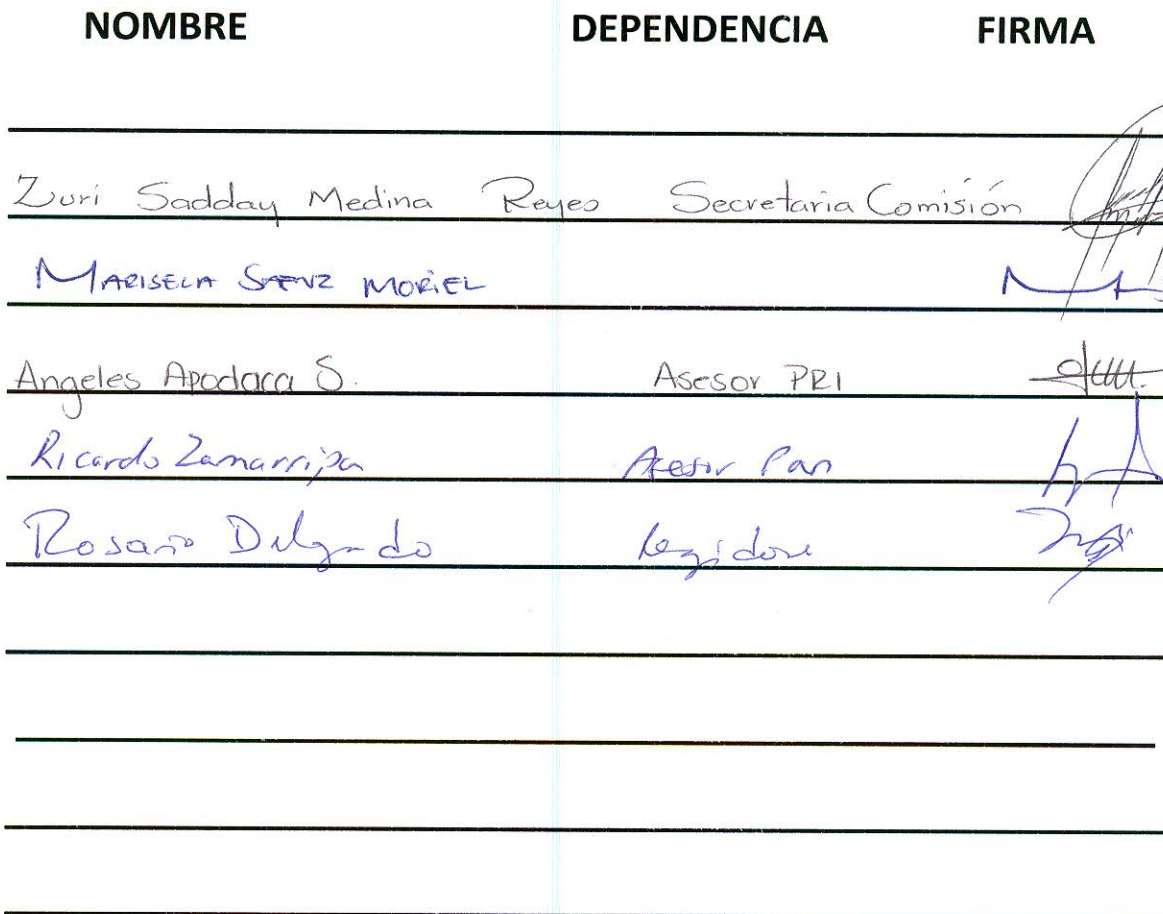 NOMBRE DEPENDENCIA FIRMA
Zuri Sadday Medina Reyes Secretaria Comisión
MARISELA SAENZ MORIEL
Angeles Apodaca S. Asesor PRI
Ricardo Zamarripa Asesor Pan
Rosario Delgado